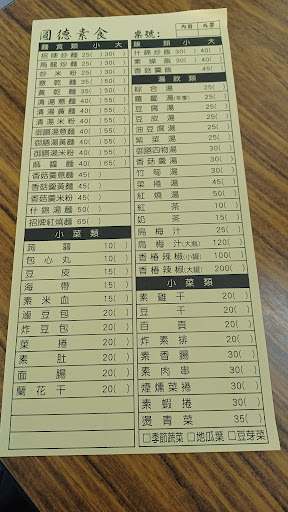 圓德素食
桌號:
內用 外帶
麵食類 小 大
招牌炒麵 25( ) 30( )
烏龍炒麵 25( ) 35( )
炒米粉 25( ) 35( )
意乾麵 25( ) 35( )
黃乾麵 25( ) 35( )
清湯意麵 40( )
清湯黃麵 40( )
清湯米粉 40( )
御膳湯意麵 40( )
御膳湯黃麵 40( )
御膳湯米粉 40( )
麻醬麵 45( )
香菇羹意麵 65( )
香菇羹黃麵 65( )
香菇羹米粉 65( )
什錦湯麵 65( )
招牌紅燒麵 65( )
小菜類
蒟蒻 10( )
包心丸 10( )
豆皮 15( )
海帶 15( )
素米血 15( )
滷豆包 20( )
炸豆包 20( )
菜捲 20( )
素肚 20( )
麵腸 20( )
蘭花干 20( )
飯類 小 大
什錦炒飯 30( ) 40( )
素燥飯 30( ) 40( )
香菇羹飯 45( )
湯飲類
綜合湯 20( )
蘿蔔湯 20( )
豆腐湯 20( )
豆皮湯 20( )
油豆腐湯 20( )
紫菜湯 20( )
御膳四物湯 30( )
香菇羹湯 30( )
竹筍湯 30( )
菜捲湯 30( )
紅燒湯 30( )
紅茶 10( )
奶茶 15( )
烏梅汁 25( )
烏梅汁(大瓶) 120( )
香椿辣椒(小罐) 100( )
香椿辣椒(大罐) 200( )
小菜類
素雞干 20( )
豆干 20( )
百頁 20( )
炸素排 20( )
素香腸 30( )
素肉串 30( )
煙燻菜捲 30( )
素蝦捲 30( )
燙青菜 35( )
□季節蔬菜 □地瓜葉 □豆芽菜